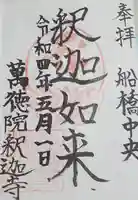 奉拝
船橋中央
釈迦如来
令和四年五月一日
萬徳院釈迦寺